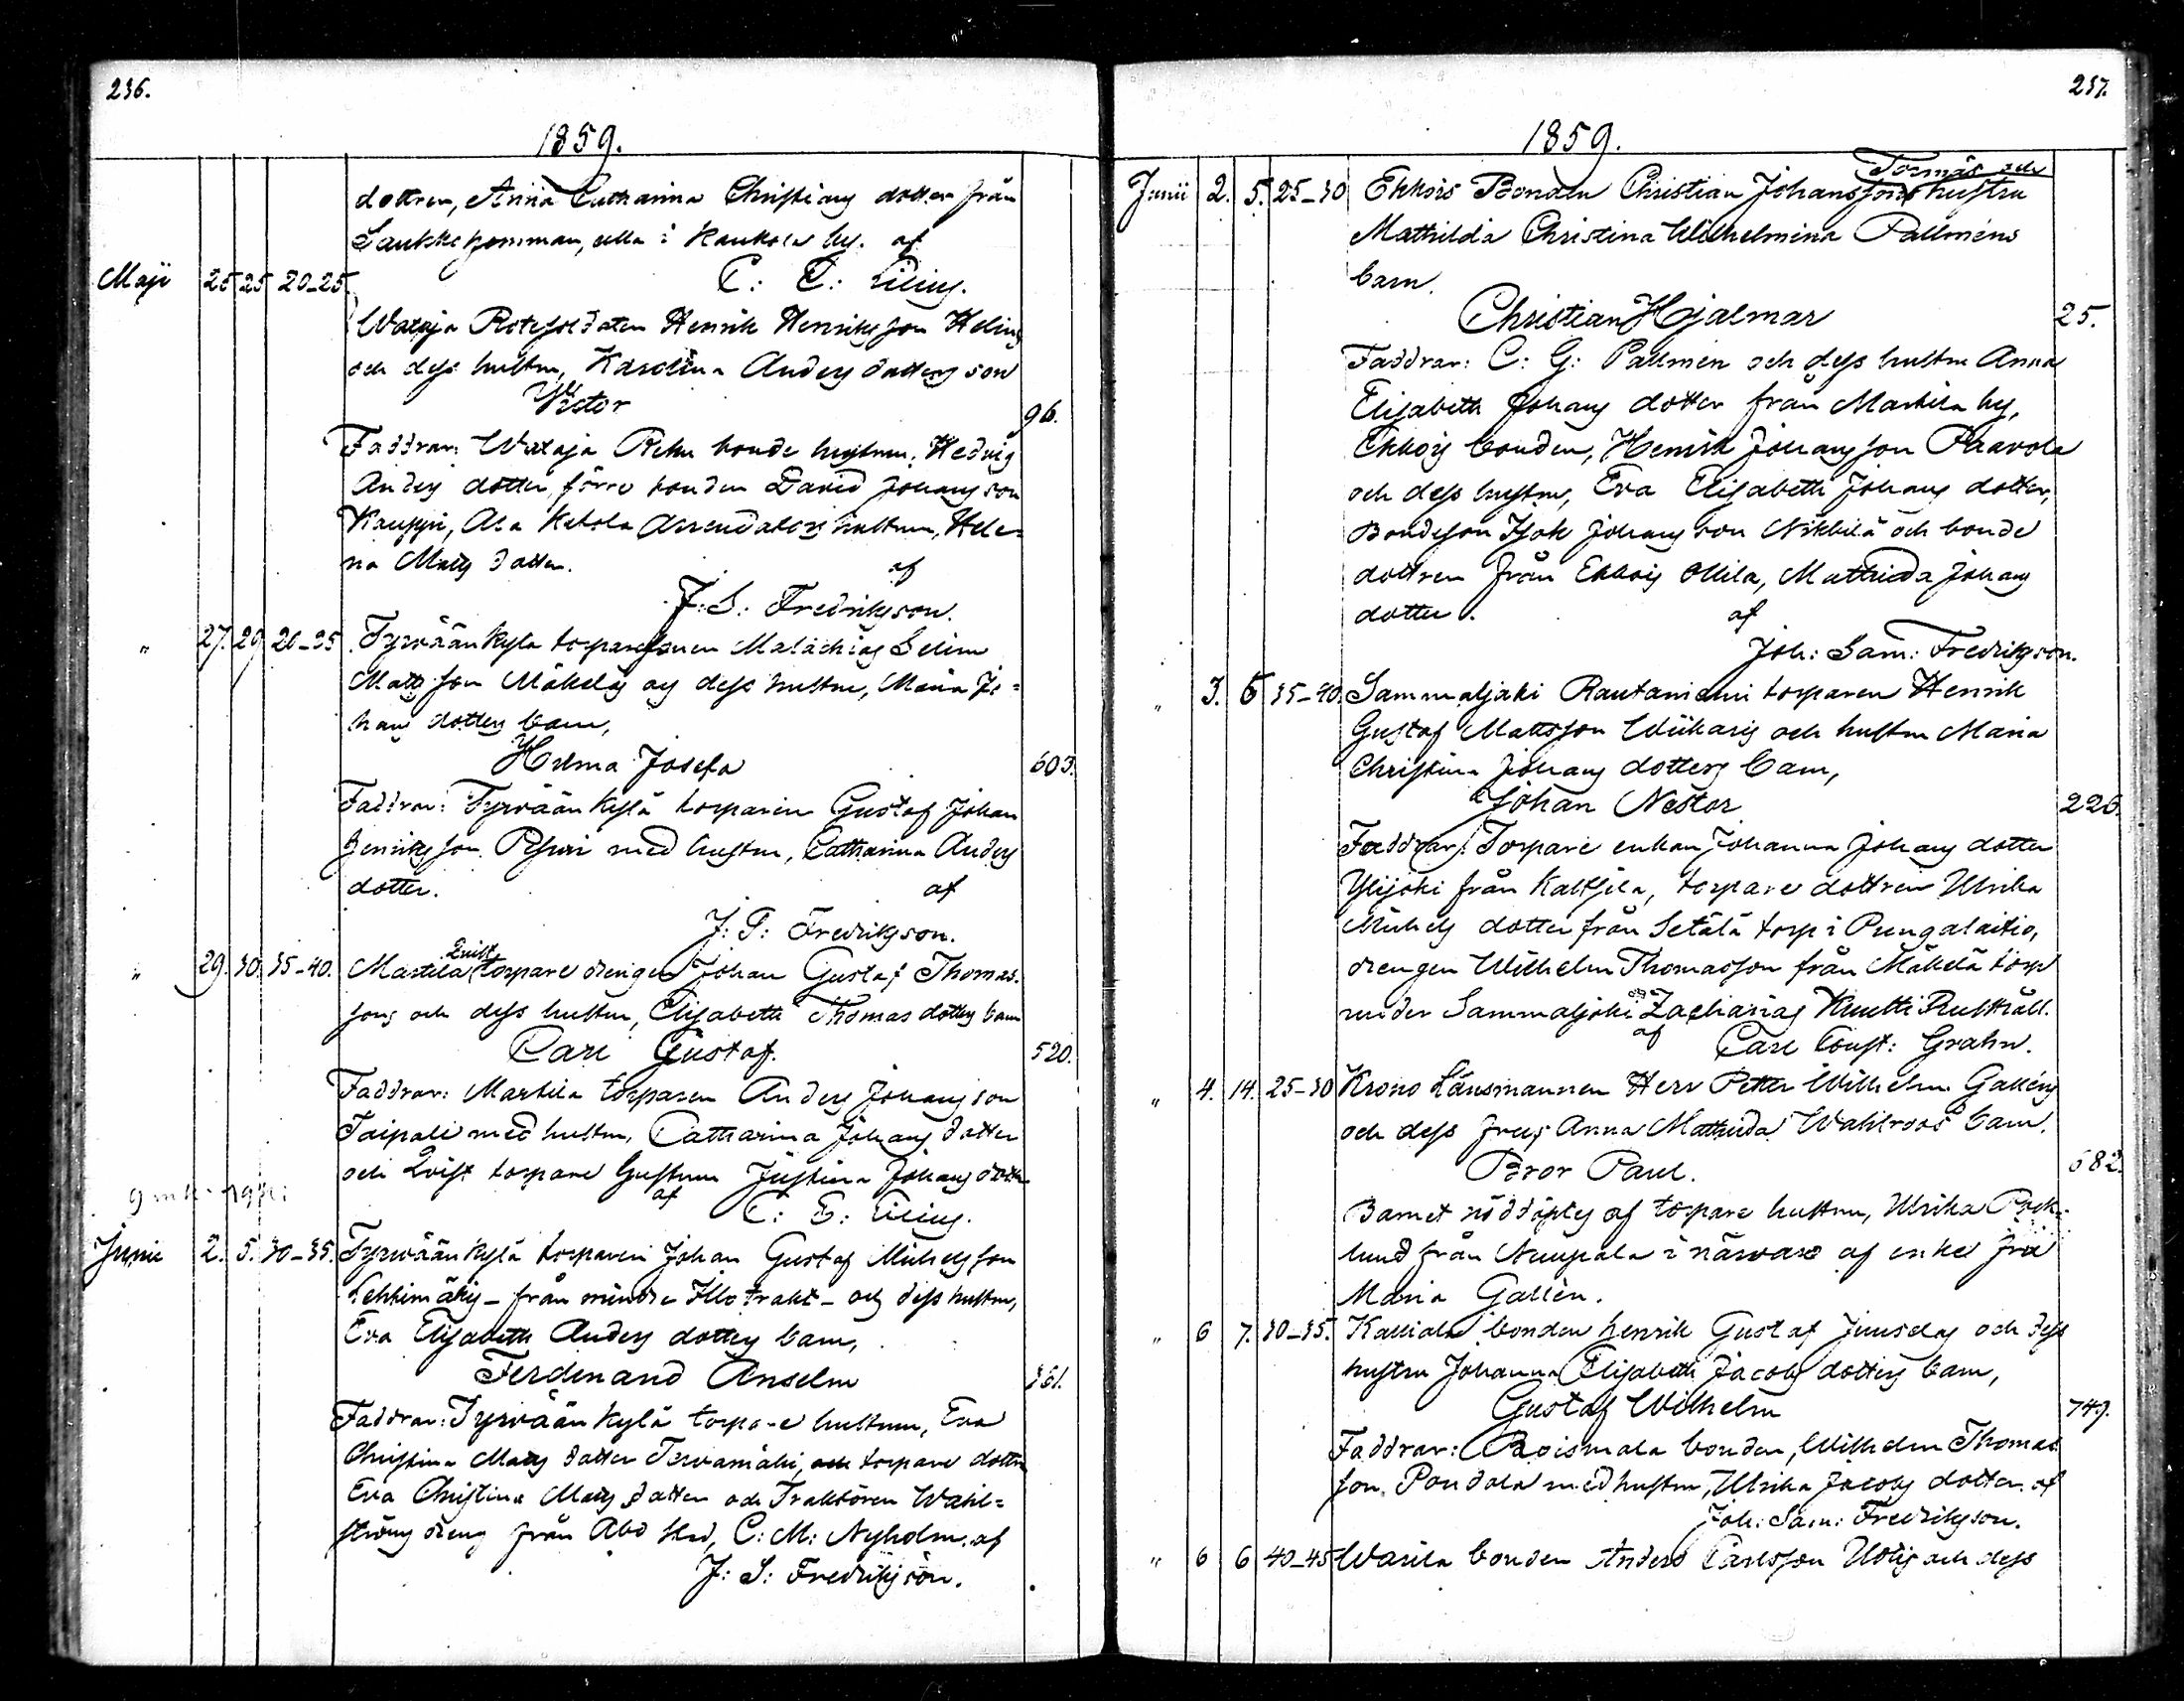 236.
1859.
dottren, Anna Catharina Christians dotter från
Saukko pemman, alla i Kaukola by. af
C: E: Lilius.
Maji 25 25 20-25
Wataja Rotesoldaten Henrik Henriksson Helins
och dess hustru, Karolina Anders dotters son
Victor 96.
Faddrar: Wataja Reku bonde hustrun, Hedvig
Anders dotter, förre bonden David Johansson
Kauppi, Ala Ketola Arrendators hustrun, Hele-
na Matts dotter. af
J: S: Fredriksson.
" 27. 29 20-25 Tyrväänkylä torparesonen Malachias Selim
Mattsson Mäkeläs och dess hustru, Maria Jo-
hans dotters barn,
Hilma Josefa 603.
Faddrar: Tyrväänkylä torparen Gustaf Johan
Henriksson med hustru, Catharina Anders
dotter. af
J: S: Fredriksson.
" 29. 30. 35-40. Martila Qvist torpare drengen Johan Gustaf Thomas-
sons och dess hustru, Elisabeth Thomas dotters barn
Carl Gustaf. 520.
Faddrar: Martila torparen Anders Johansson
Taipale med hustru, Catharina Johans dotter
och Qvist torpare hustrun Justina Johans dotter
af C: E: Lilius.
Junii 2. 5. 30-35. Tyrväänkylä torparen Johan Gustaf Michelsson
Lehtimäkis - från mindre Illo trakt - och dess hustru,
Eva Elisabeth Anders dotters barn,
Ferdinand Anselm 361.
Faddrar: Tyrväänkylä torpare hustrun, Eva
Christina Matts dotter Tervamäki, och torpare dottren
Eva Christina Matts dotter och Traktören Wahl-
ströms dreng från Åbo stad, C: M: Nyholm. af
J: S: Fredriksson.
237.
1859.
Tornäs och
Junii 2. 5. 25-30 Ekkois Bonden Christian Johanssons hustru
Mathilda Christina Wilhelmina Pallmens
barn.
Christian Hjalmar 25.
Faddrar: C: G: Pallmen och dess hustru Anna
Elisabeth Johans dotter från Martila by,
Ekkois bonden, Henrik Johansson Paavola
och dess hustru, Eva Elisabeth Johans dotter,
Bondeson Isak Johansson Nikkilä och bonde
dottren från Ekkois Ollila, Mathilda Johans
dotter. af
Joh: Sam: Fredriksson.
" 3. 5 35-40. Sammaljoki Rautaniemi torparen Henrik
Gustaf Mattsson Wiikaris och hustru Maria
Christina Johans dotters barn,
Johan Nestor 226.
Faddrar: Torpare enkan Johanna Johans dotter
Ylijoki från Kaltsila, torpare dottren Ulrika
Michels dotter från Setälä torp i Pungalaitio,
drengen Wilhelm Thomasson från Mäkelä torp
under Sammaljoki Zacharias Knutti Rusthåll.
af Carl Const: Grahn.
" 4. 14. 25-30 Krono Länsmannen Herr Petter Wilhelm Galléns
och dess frus Anna Mathilda Wahlroos barn.
Bror Paul. 682.
Barnet nöddöptes af torpare hustrun, Ulrika
lund från Nuupala i närvaro af enke fru
Maria Gallén.
" 6 7. 30-35. Kalliala bonden Henrik Gustaf Juuselas och dess
hustru Johanna Elisabeth Jacobs dotters barn,
Gustaf Wilhelm 749.
Faddrar: Roismala bonden, Wilhelm Thomas-
son, Pondola med hustru, Ulrika Jacobs dotter. af
Joh: Sam: Fredriksson.
" 6 6 40-45 Warila bonden Anders Carlsson Uotis och dess